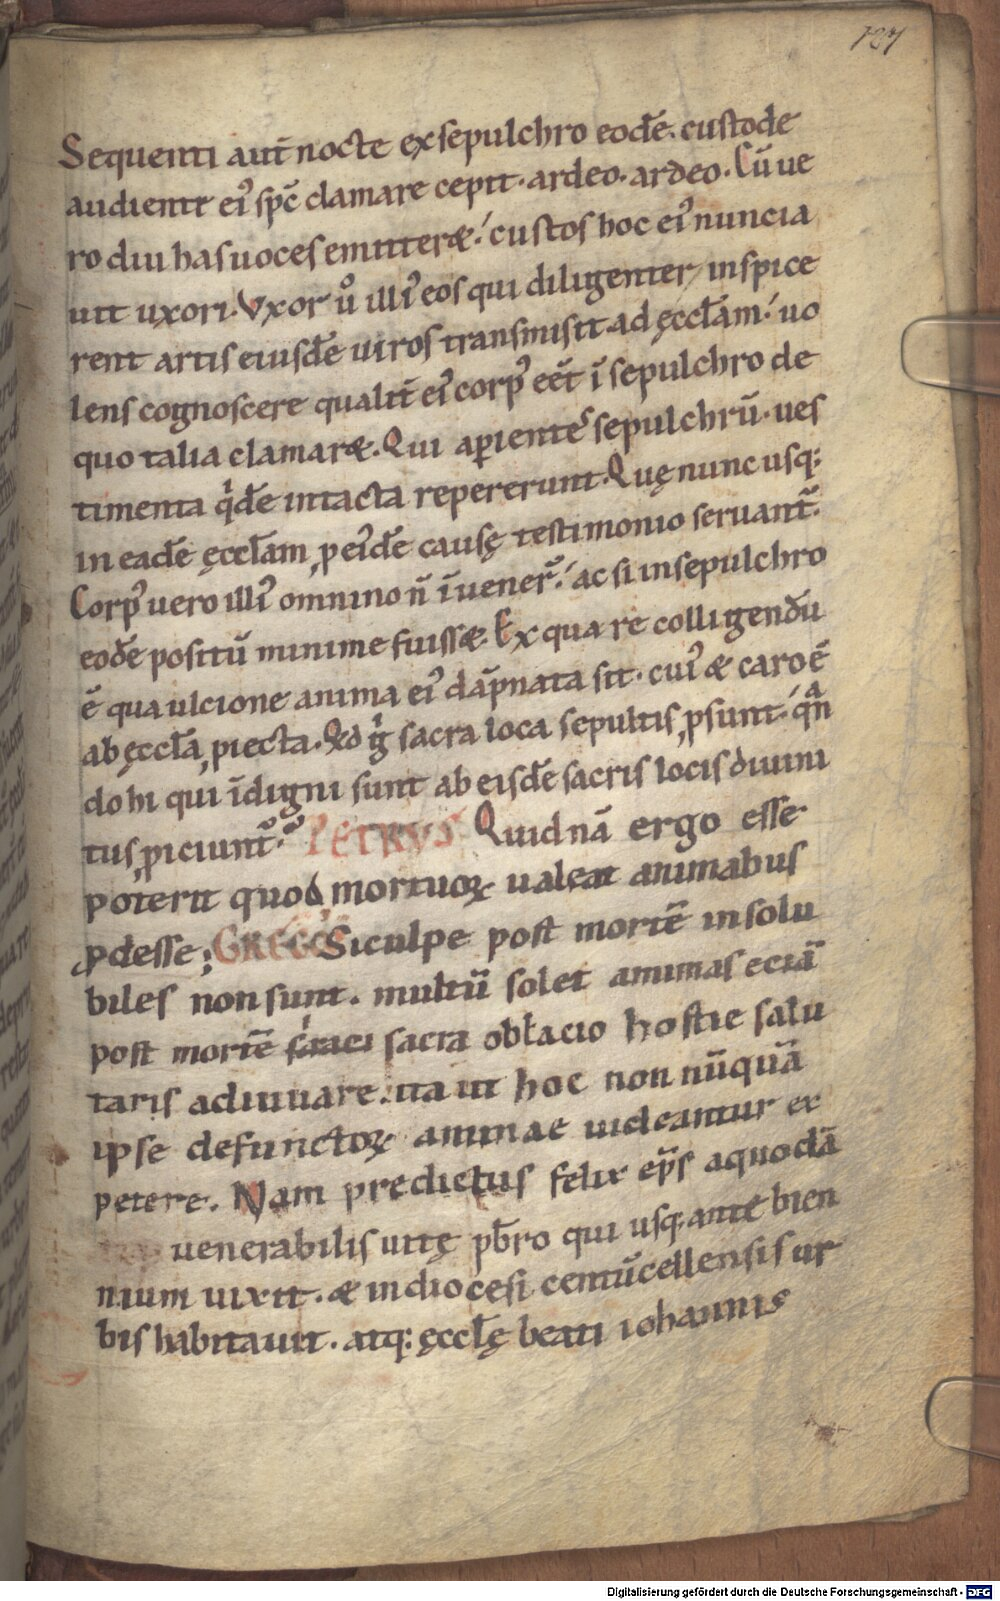 127
Sequenti aut̄ nocte ex sepulchro eodē. custode
audiente ei᷒ sp̄c clamare cepit. ardeo. ardeo. Cū ue
ro diu has uoces emitteret. custos hoc ei᷒ nuncia
uit uxori. Vxor ů illi᷒ eos qui diligenter inspice
rent artis eiusdē uiros transmisit ad ęccl̄am. uo
lens cognoscere qualit̄ ei᷒ corp᷒ eēt ī sepulchro de
quo talia clamaret. Qui aꝑiente᷒ sepulchrū. ues
timenta qͥdē intacta repererunt. Quę nunc usq;
in eadē ęccl̄am ꝓ ei᷒dē causę testimonio seruant᷑.
Corp᷒ uero illi᷒ omnino n̄ īuener̄. ac si in sepulchro
eodē positū minime fuisset. Ex qua re colligendū
ē qua ulcione anima ei᷒ dāpnata sit. cui᷒ & caro ē
ab ęccl̄a ꝓiecta. Qd̄ gͥ sacra loca sepultis ꝓsunt. qᵃn
do hi qui īdigni sunt ab eisdē sacris locis diuini
tus ꝓiciunt᷑. PETRVS. Quid nā ergo esse
poterit quod mortuoꝝ ualeat animabus
ꝓdesse; GREGꝰ Si culpe post mortē insolu
biles non sunt. multū solet animas eciā
post mortē sacra obl̄acio hostie salu
taris adiuuare. ita ut hoc non nūquā
ipse defunctoꝝ animae uideantur ex
petere. Nam predictus felix ep̄s a quodā
uenerabilis uitę pb̄ro qui usq; ante bien
nium uixit. & in diocesi centūcellensis ur
bis habitauit. atq; ęccl̄ę beati iohannis
Digitalisierung gefördert durch die Deutsche Forschungsgemeinschaft - DFG